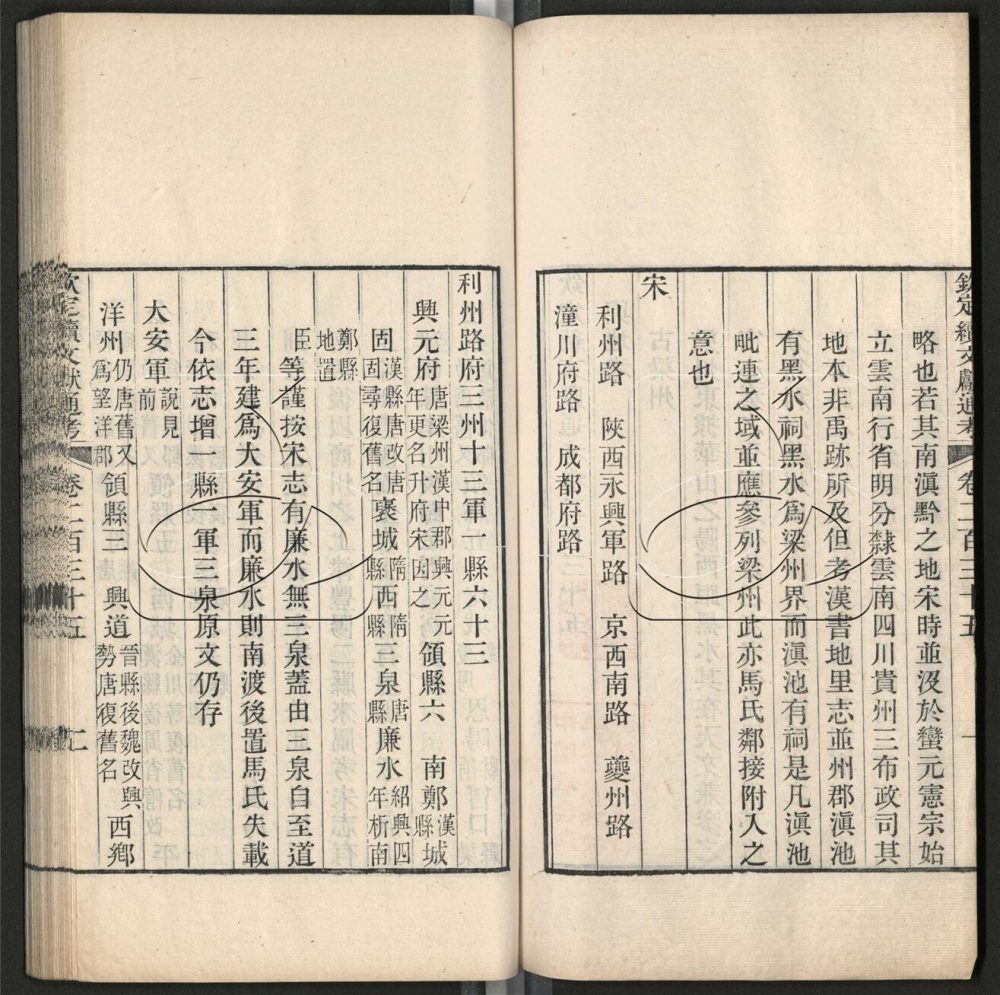 欽定續文獻通考 卷二百三十五
略也若其南滇黔之地宋時並汲於蠻元憲宗始
立雲南行省明分隸雲南四川貴州三布政司其
地本非禹跡所及但考漢書地里志並州郡滇池
有黑水祠黑水爲梁州界而滇池有祠是凡滇池
毗連之域並應參列梁州此亦馬氏鄰接附入之
意也
宋
利州路 陝西永興軍路 京西南路 夔州路
潼川府路 成都府路
利州路府三州十三軍一縣六十三
興元府唐梁州漢中郡興元元年更名升府宋因之領縣六 南鄭漢縣城
固漢縣唐改唐固尋復舊名襃城隋縣西隋縣三泉唐縣廉水紹興四年析南
鄭縣地置
臣等謹按宋志有廉水無三泉蓋由三泉自至道
三年建爲大安軍而廉水則南渡後置馬氏失載
今依志增一縣一軍三泉原文仍存
大安軍說見前
洋州仍唐舊又爲望洋郡領縣三 興道晉縣後魏改興勢唐復舊名西鄉
欽定續文獻通考 卷二百三十五